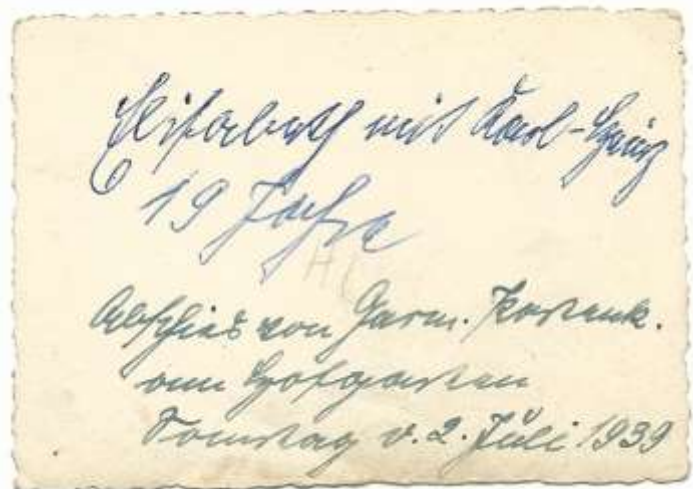 Elisabeth mit Karl-Heinz
19 Jahre
Abschied von Garm. Partenk.
am Hofgarten
Sonntag d. 2. Juli 1939